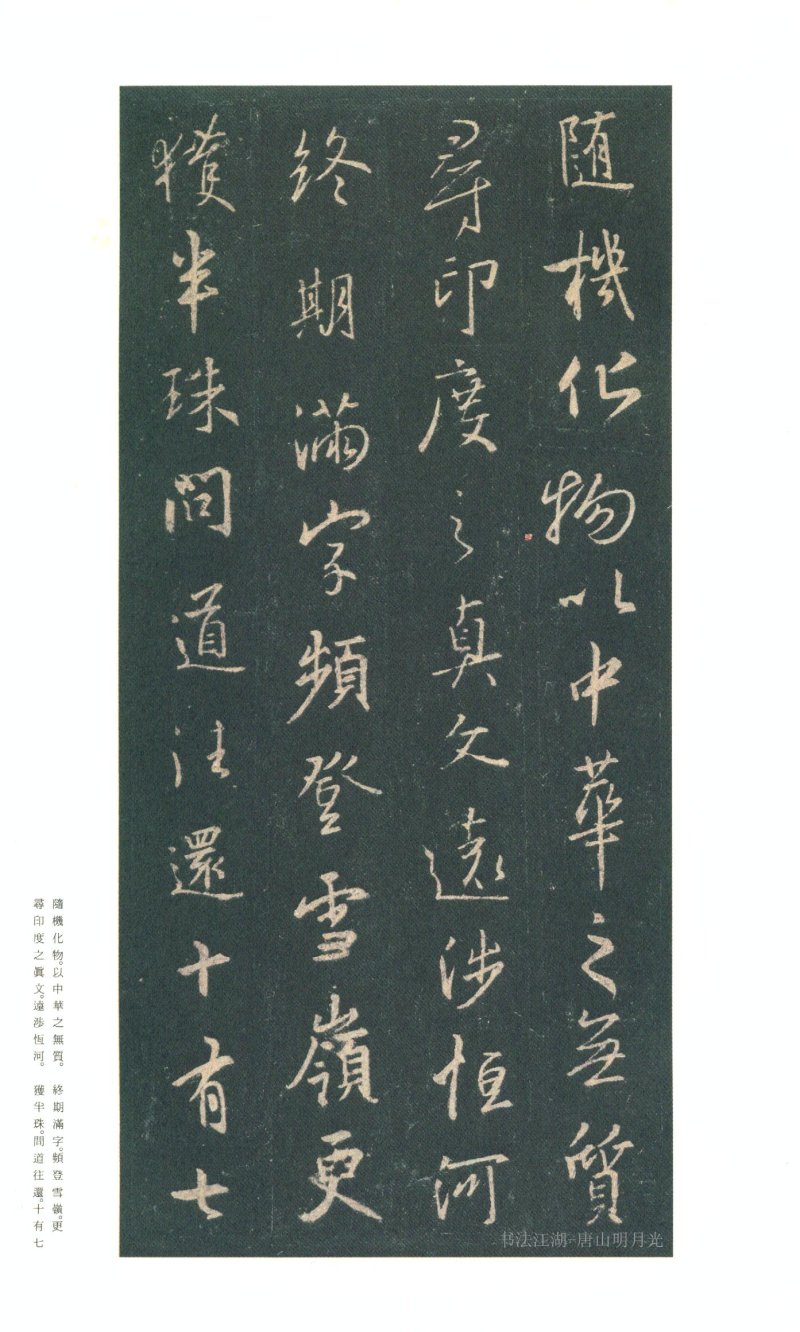 随機化物以中華之無質
尋印度之真文遠涉恒河
終期滿字頻登雪嶺更
獲半珠問道往還十有七
隨機化物。以中華之無質。終期滿字。頻登雪嶺。更
尋印度之眞文。遠涉恆河。獲半珠。問道往還。十有七
书法江湖-唐山明月光